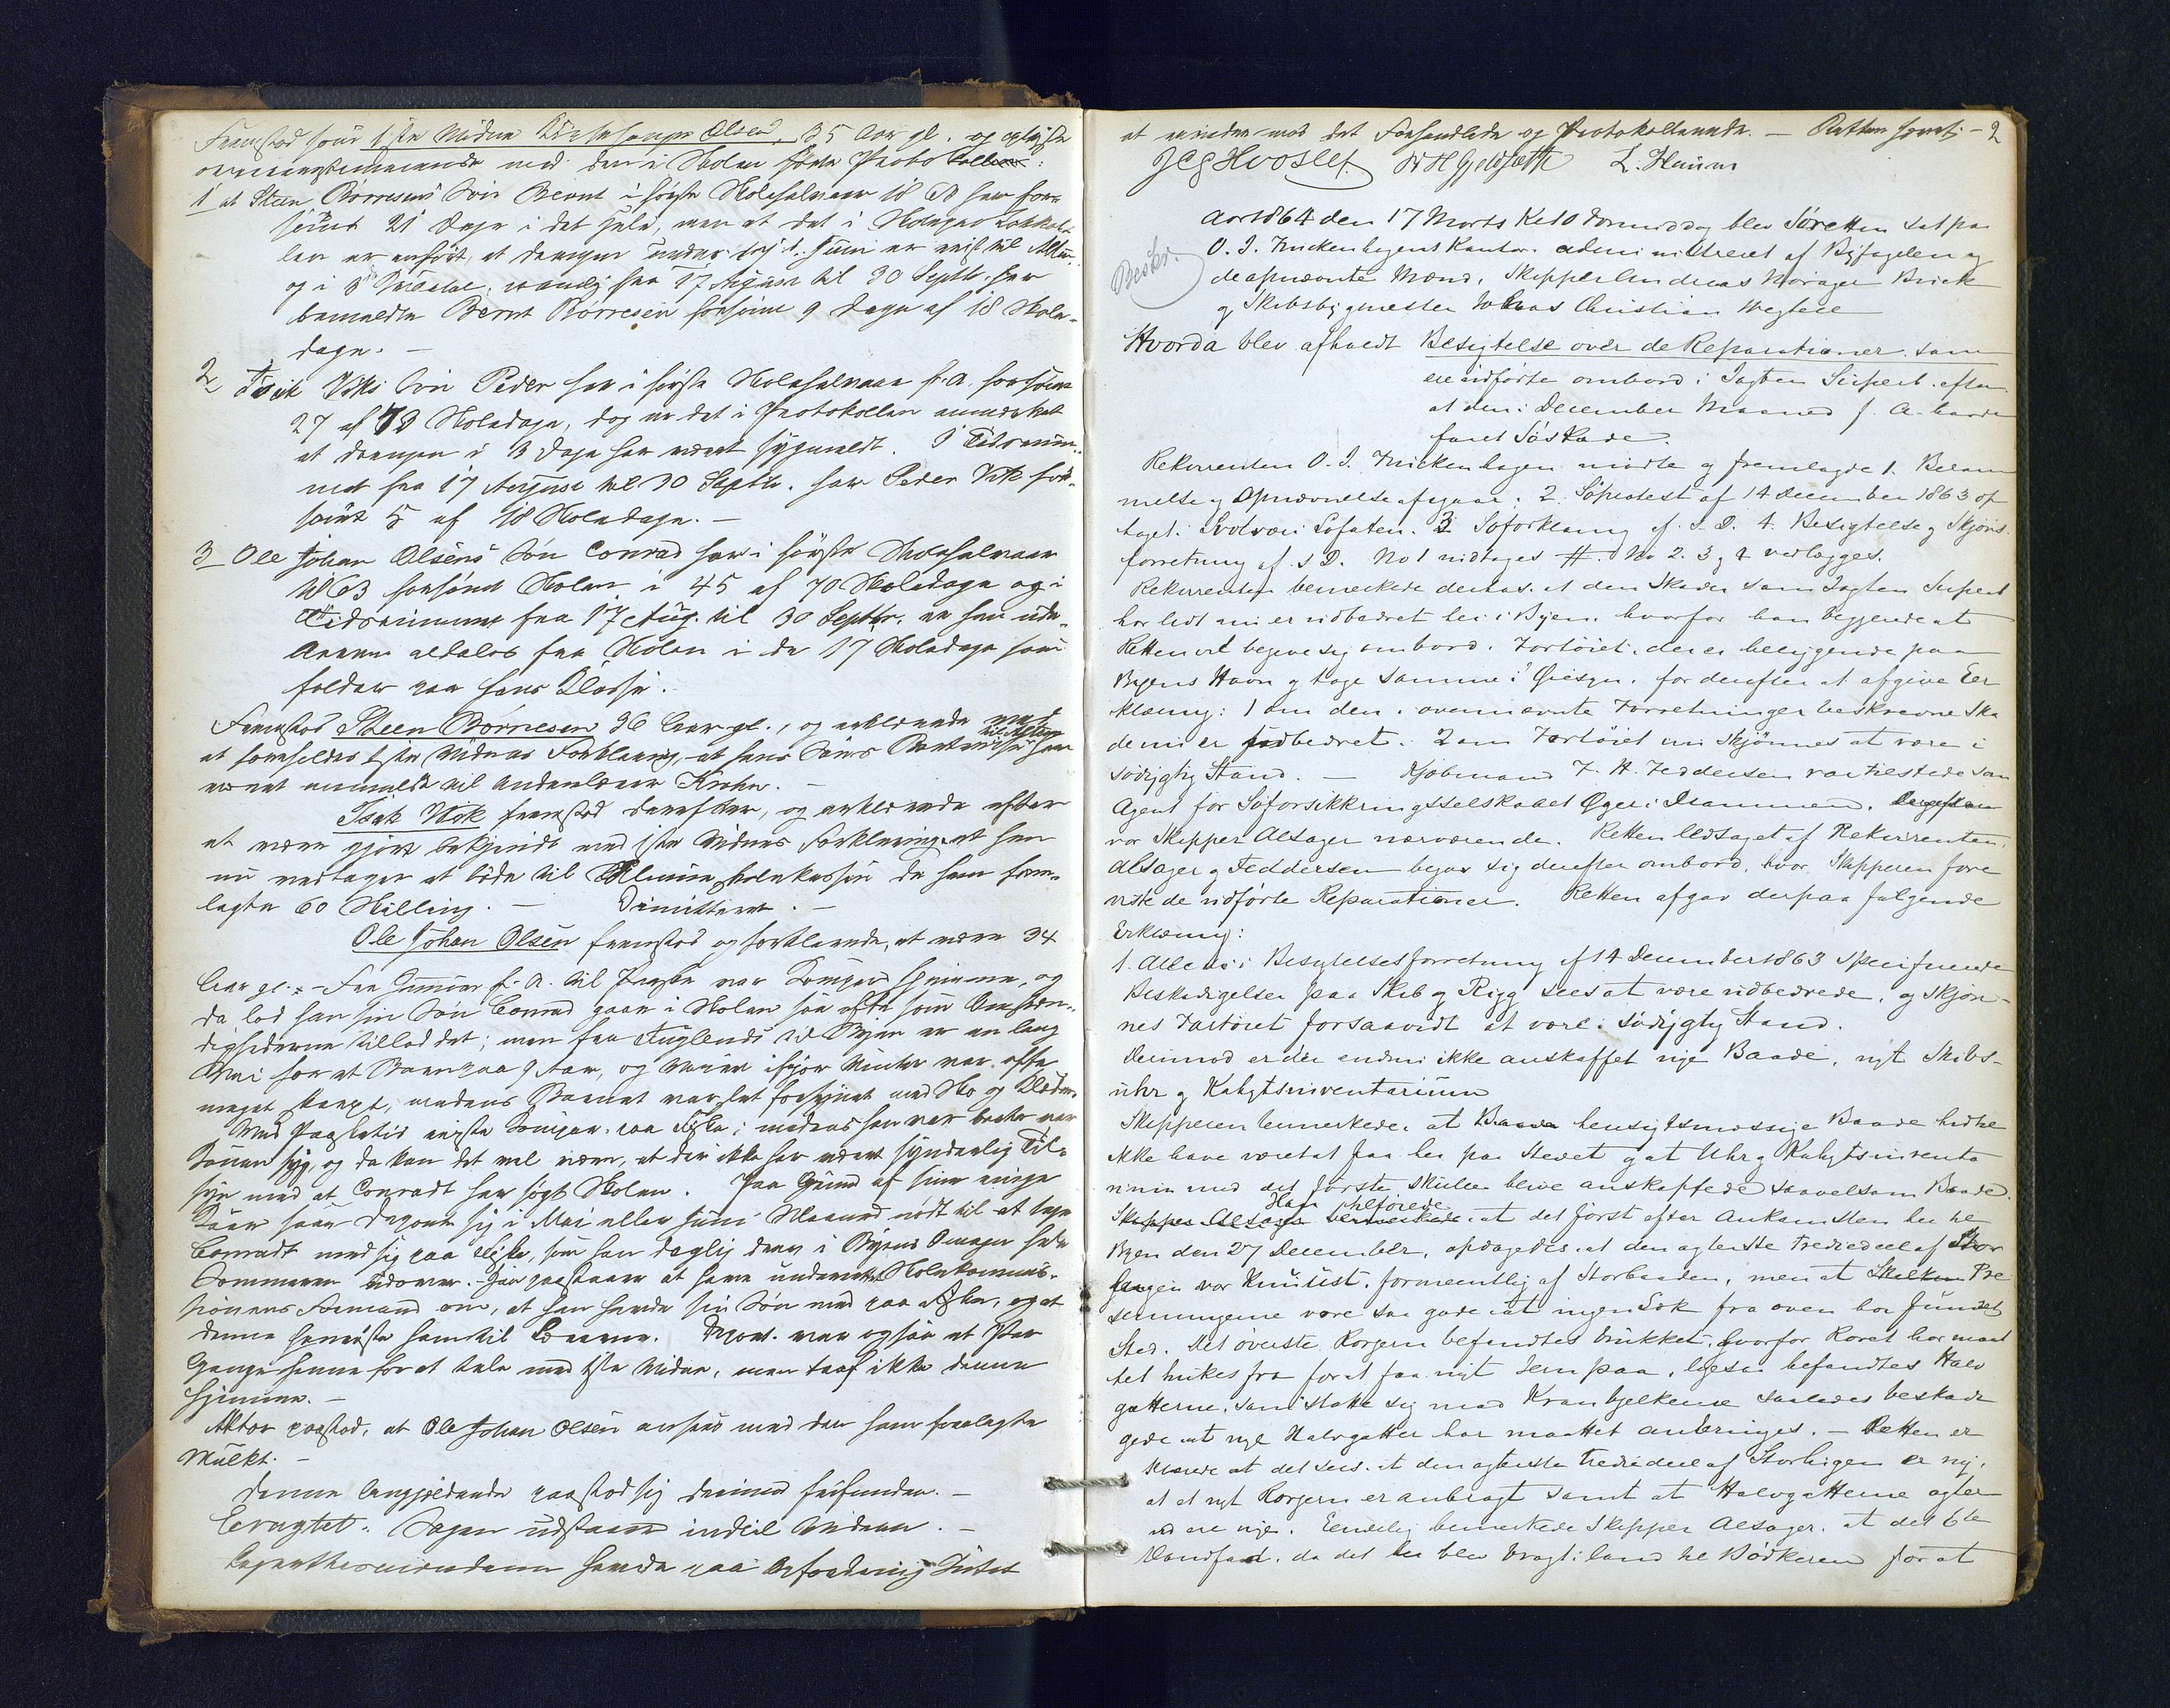 Fremstod som 1ste Vidne Olsen, 35 Aar gl. og oplyste
overensstemmende med den i Skolen førte Protokollen:
1 at Steen Børresens Søn Bernt i første Skolehalvaar 1863 har for-
sømt 21 Dage i det Hele, men at det i Skolens Protokol-
len er anført, at Drengen under 1. Juni er reist til
og i nemlig fra 17 August til 30 Septbr. har
bemeldte Bernt Børresen forsømt 9 Dage af 18 Skole-
dage. —
2 Isak Viks Søn Peder har i første Skolehalvaar f. A. forsømt
27 af 70 Skoledage, dog er det i Protokollen anmærket
at Drengen i 3 Dage har været sygmeldt. I Tidsrum-
met fra 17 August til 30 Septbr. har Peder Vik for-
sømt 5 af 18 Skoledage. —
3 Ole Johan Olsens Søn Conrad har i første Skolehalvaar
1863 forsømt Skolen i 45 af 70 Skoledage og i
Tidsrummet fra 17 Aug. til 30 Septbr. er han ude-
bleven aldeles fra Skolen i de 17 Skoledage som
falder paa hans Klasse.
Fremstod Steen Børresen 36 Aar gl., og erklærede ved
at foreholdes 1ste Vidnes Forklaring, at hans Søns
været anmeldt til Andenlærer Krohn. —
Isak Vik fremstod derefter, og erklærede efter
at være gjort bekjendt med 1ste Vidnes Forklaring, at han
nu vedtager at bøde til Skolekassen de ham fore-
lagte 60 Skilling. — Dimitteret. —
Ole Johan Olsen fremstod og forklarede, at være 34
Aar gl. — Fra Januar f. A. til Paaske var Comparenten hjemme, og
da lod han sin Søn Conrad gaae i Skolen saa ofte som Omstæn-
dighederne tillod det; men fra Fuglenæs til Byen er en lang
Vei for et Barn paa 9 Aar, og Veien ifjor Vinter var ofte
meget slem, medens Barnet var slet forsynet med Sko og Klæder.
Ved Paasketid reiste Comparenten paa Fiske; medens han var borte var
Konen syg, og da kan det vel være, at der ikke har været synderlig Til-
syn med at Conradt har søgt Skolen. Paa Grund af sine ringe
Kaar saae Deponenten sig i Mai eller Juni Maaned nødt til at tage
Conradt med sig paa Fiske, som han daglig drev i Byens Omegn hele
Sommeren udover. — Han paastaaer at have underrettet Skolekommis-
sionens Formand om, at han havde sin Søn med paa Fiske, og at
denne henviste ham til Læreren. Deponenten var ogsaa et Par
Gange henne for at tale med 1ste Vidne, men traf ikke denne
hjemme. —
Aktor paastod, at Ole Johan Olsen ansees med den ham forelagte
Mulkt. —
Denne Angjældende paastod sig derimod frifunden. —
Eragtet: Sagen udstaaer indtil videre. —
Lagrettesmændene havde paa Anfordring Intet
at erindre mod det Forhandlede og Protokollerede. — Retten hævet. — 2
JCG Hvoslef. L. Hanssen
Aar 1864 den 17 Marts Kl 10 Formiddag blev Søretten sat paa
O. J. Finckenhagens Kontor administreret af Byfogden og
Beskr.
de opnævnte Mænd, Skipper Andreas Norager Brick
og Skibsbygmester Tobias Christian Wegtell
Hvorda blev afholdt Besigtelse over de Reparationer som
ere udførte ombord i Jagten Superb. efter
at den i December Maaned f. A. havde
faaet Søskade.
Rekvirenten O. J. Finckenhagen mødte og fremlagde 1. Beram
melse og Opnævnelse af igaar. 2. Søprotest af 14 December 1863 op
taget i Svolvær i Lofoten. 3 Søforklaring af s. D. 4. Besigtelse og Skjøns
forretning af s D. No 1 indtages #. No 2. 3 og 4 vedlægges.
Rekvirenten bemerkede derhos at den Skade som Jagten Superb
har lidt nu er udbedret her i Byen. hvorfor han begjerede at
Retten vil begive sig ombord i Fartøiet, der er beliggende paa
Byens Havn og tage samme i Øiesyn. for derefter at afgive Eer
klæring: 1 om den i ovennævnte Forretninger beskrevne Ska
de nu er udbedret. 2 om Fartøiet nu skjønnes at være i
sødygtig Stand. — Kjøbmand F. H. Feddersen var tilstede som
Agent for Søforsikkringsselskabet Øger i Drammen. Derefter
var Skipper Alsager nærværende. Retten ledsaget af Rekvirenten,
Alsager og Feddersen begav sig derefter ombord, hvor Skipperen fore
viste de udførte Reparationer. Retten afgav derpaa følgende
Erklæring:
1. Alle de i Besigtelsesforretning af 14 December 1863 specificerede
Beskadigelser paa Skib og Rigg sees at være udbedrede, og skjøn-
nes Fartøiet forsaavidt at være i sødygtig Stand.
Derimod er der endnu ikke anskaffet nye Baade, nyt Skibs-
uhr og Kahytsinventarium
Skipperen bemerkede. at Baade hensigtsmæssige Baade hidtil
ikke have været at faa her paa Stedet og at Uhr og Kahytsinventa
rium med det første skulle blive anskaffede saavelsom Baade.
Han tilføiede
Skipper Alsager bemerkede at det først efter Ankomsten her til
Byen den 27 December, opdagedes. at den agterste Trediedeel af Stor
lugen var knuust, formeentlig af Storbaaden, men at Skalken Pre
senningerne vare saa gode at ingen Læk fra oven har fundet
Sted. Det øverste Rorjern befandtes brukket, hvorfor Roret har maat
tet hukes fra for at faa nyt Jern paa, ligesaa befandtes Halv
gatterne, som støtte sig mod Kranbjelkerne saaledes beskadi
gede at nye Halvgatter har maattet anbringes. — Retten er
klærede at det sees at den agterste Trediedeel af Storlugen er ny,
at et nyt Rorjern er anbragt samt at Halvgatterne agter
ud ere nye. Eendelig bemerkede Skipper Alsager, at det 6te
Vandfad, da det her blev bragt i land til Bødkeren for at